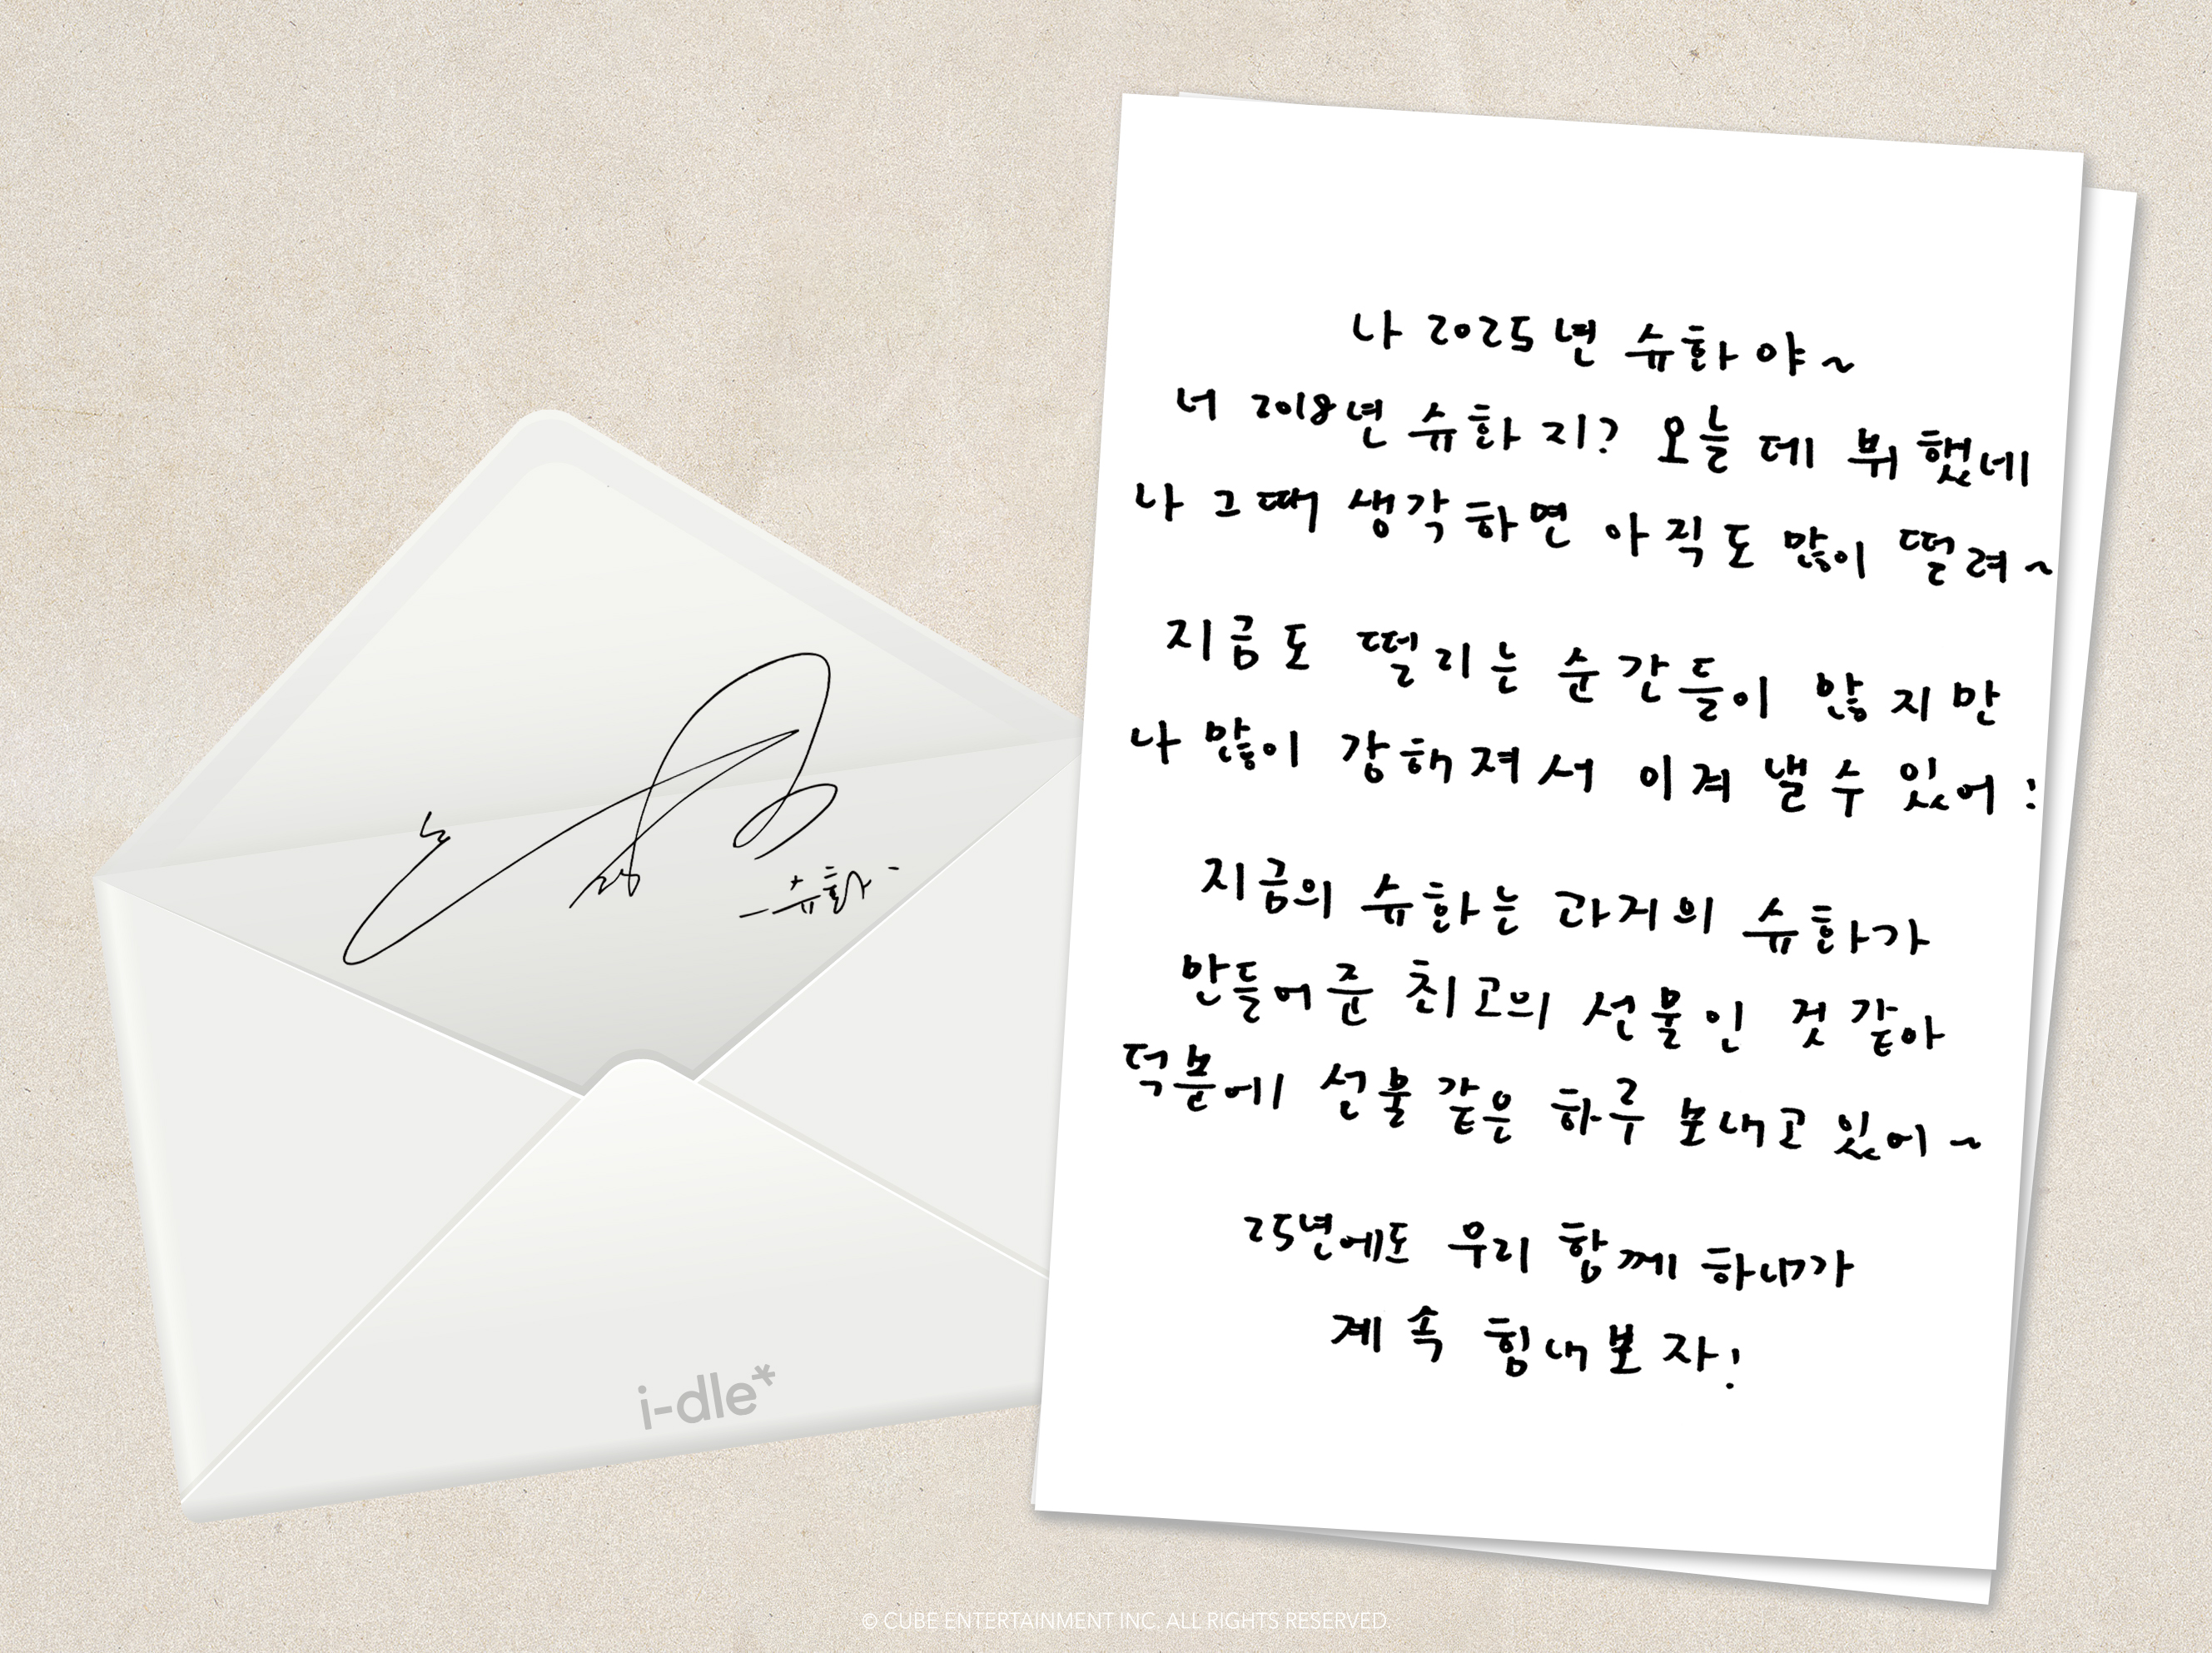 나 2025년 슈화야~
너 2018년 슈화지? 오늘 데뷔했네
나 그때 생각하면 아직도 많이 떨려~
지금도 떨리는 순간들이 많지만
나 많이 강해져서 이겨낼 수 있어!
지금의 슈화는 과거의 슈화가
만들어준 최고의 선물인 것 같아
덕분에 선물 같은 하루 보내고 있어~
25년에도 우리 함께 하니까
계속 힘내보자!
-슈화-
i-dle*
© CUBE ENTERTAINMENT INC. ALL RIGHTS RESERVED.